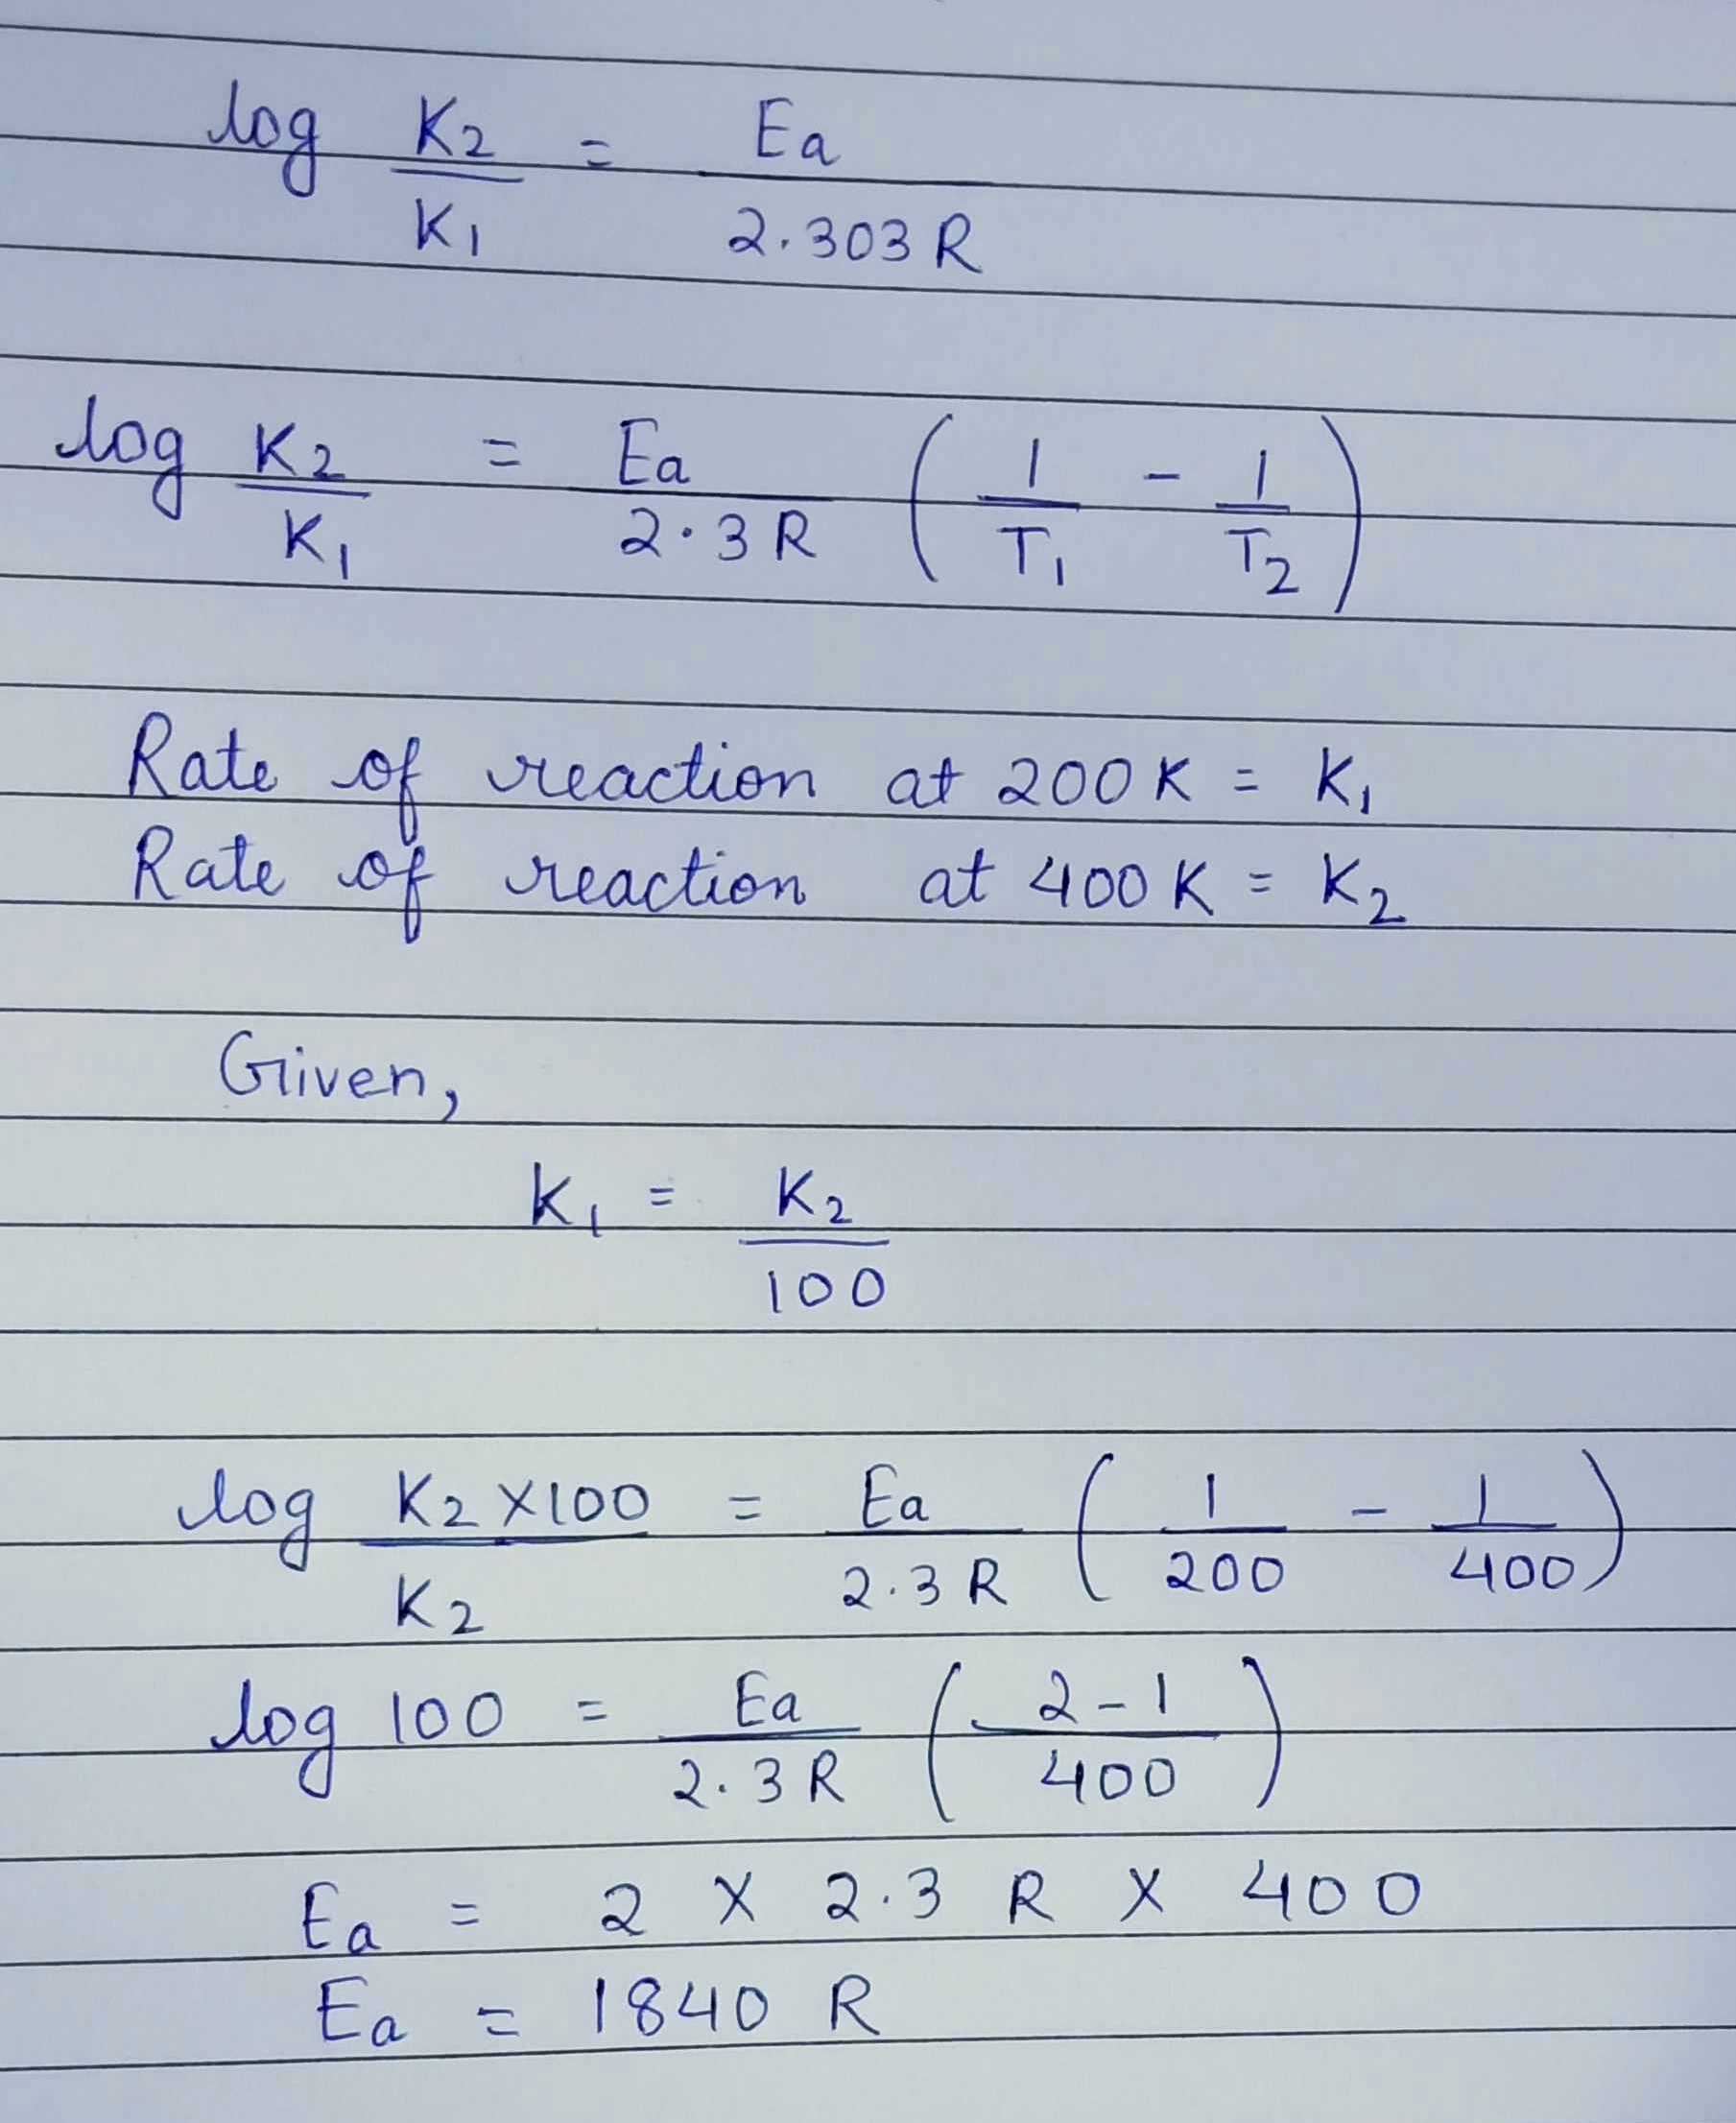 log K2/K1 = Ea/2.303R
log K2/K1 = Ea/2.3R (1/T1 - 1/T2)
Rate of reaction at 200K = K1
Rate of reaction at 400K = K2
Given,
K1 = K2/100
log K2×100/K2 = Ea/2.3R (1/200 - 1/400)
log 100 = Ea/2.3R (2-1/400)
Ea = 2 × 2.3 R × 400
Ea = 1840 R